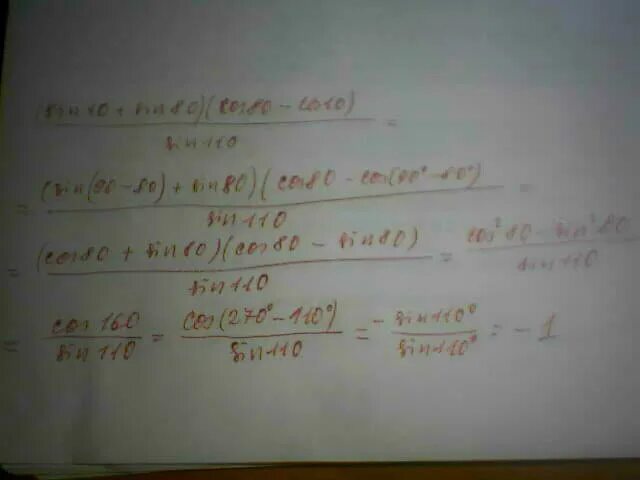 (sin10 + sin80)(cos80 - cos10)
sin110 =
= (sin(90-80) + sin80)(cos80 - cos(90°-80°) =
sin110
= (cos80 + sin80)(cos80 - sin80) = cos²80 - sin²80
sin110 sin110
= cos160 = cos(270°-110°) = - sin110° = -1
sin110 sin110 sin110°